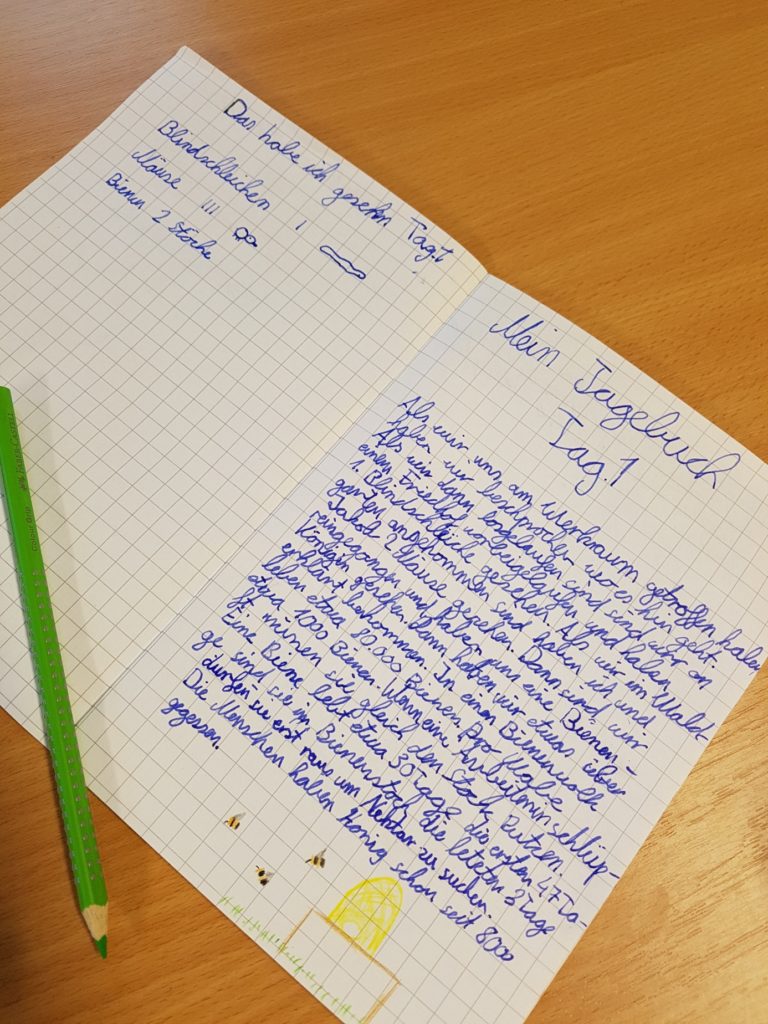 Das habe ich gesehn Tag.1
Blindschleichen I
Mäuse III
Bienen 2 Stöcke
Mein Tagebuch
Tag.1
Als wir uns am Werkraum getroffen haben
haben wir beschprochen wo es hin geht.
Als wir dann losgelaufen sind sind wir an
einem Friedhof vorbeigelaufen und haben
1. Blindschleiche gesehen. Als wir im Wald-
garten angekommen sind haben ich und
Jakob 2 Mäuse gesehen. Dann sind wir
reingegangen und haben uns eine Bienen-
königin gesehen. Dann haben wir etwas über
erklärt bekommen. In einen Bienenvolk
leben etwa 80.000 Bienen. Pro Wabe
etwa 1000 Bienen. Wenn eine Arbeiterin schlüp-
ft müssen sie gleich den Stock Putzen.
Eine Biene lebt etwa 50 Tage die ersten 47 Ta-
ge sind sie im Bienenstock die letzten 3 Tage
dürfen sie erst raus um Nektar zu suchen.
Die Menschen haben Honig schon seit 8000
gegessen.
Colour GRIP FABER-CASTELL